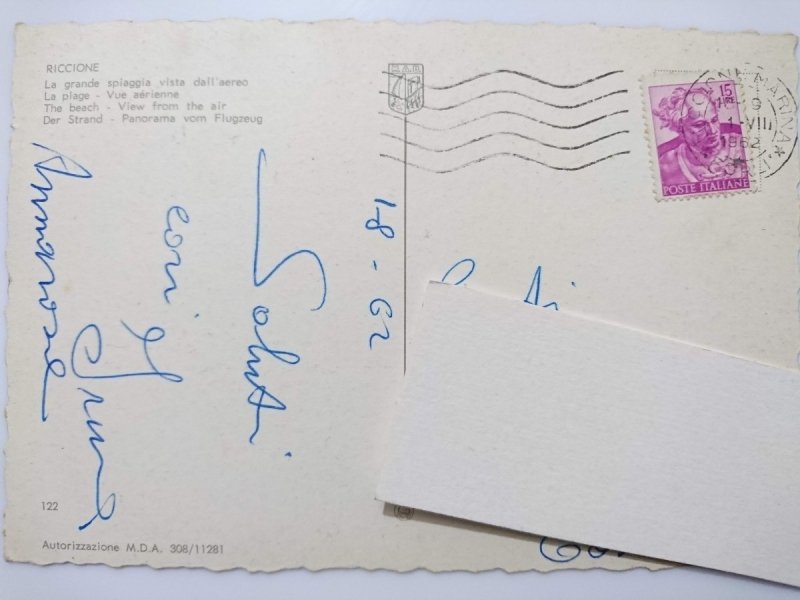 RICCIONE
La grande spiaggia vista dall'aereo
La plage - Vue aérienne
The beach - View from the air
Der Strand - Panorama vom Flugzeug
1-8-62
Saluti
cari
Annarosa
122
Autorizzazione M.D.A. 308/11281
S.A.R.
15
POSTE ITALIANE
MARINA
1-VIII
1962